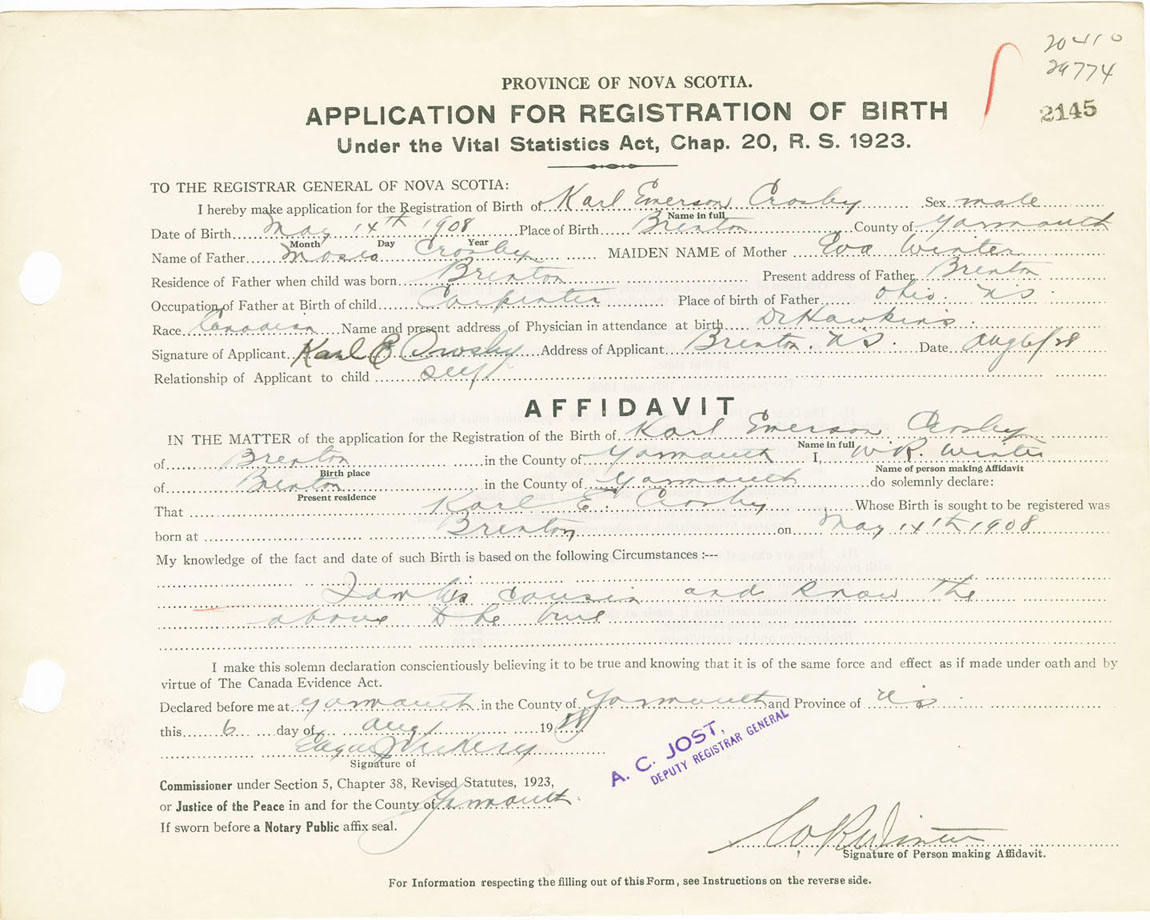 20410
29774
2145
PROVINCE OF NOVA SCOTIA.
APPLICATION FOR REGISTRATION OF BIRTH
Under the Vital Statistics Act, Chap. 20, R. S. 1923.
TO THE REGISTRAR GENERAL OF NOVA SCOTIA:
I hereby make application for the Registration of Birth of Karl Emerson Crosby Sex male
Name in full
Date of Birth May 14th 1908 Place of Birth Brenton County of Yarmouth
Month Day Year
Name of Father Moses Crosby MAIDEN NAME of Mother Eva Winter
Residence of Father when child was born Brenton Present address of Father Brenton
Occupation of Father at Birth of child Carpenter Place of birth of Father Ohio NS
Race Canadian Name and present address of Physician in attendance at birth Dr Hawkins
Signature of Applicant Karl E Crosby Address of Applicant Brenton. NS. Date Aug 6/28
Relationship of Applicant to child Self
AFFIDAVIT
IN THE MATTER of the application for the Registration of the Birth of Karl Emerson Crosby
Name in full
of Brenton in the County of Yarmouth I, W.R. Winter
Birth place Name of person making Affidavit
of Brenton in the County of Yarmouth do solemnly declare:
Present residence
That Karl E. Crosby Whose Birth is sought to be registered was
born at Brenton on May 14th 1908
My knowledge of the fact and date of such Birth is based on the following Circumstances :---
I am his cousin and know the
above to be true
I make this solemn declaration conscientiously believing it to be true and knowing that it is of the same force and effect as if made under oath and by
virtue of The Canada Evidence Act.
Declared before me at Yarmouth in the County of Yarmouth and Province of NS
this 6 day of Aug 1928
Signature of
A. C. JOST,
DEPUTY REGISTRAR GENERAL
Commissioner under Section 5, Chapter 38, Revised Statutes, 1923,
or Justice of the Peace in and for the County of Yarmouth.
If sworn before a Notary Public affix seal.
W R Winter
Signature of Person making Affidavit.
For Information respecting the filling out of this Form, see Instructions on the reverse side.